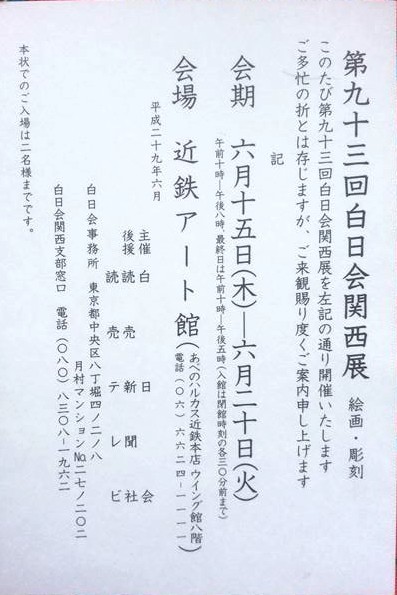 第九十三回白日会関西展 絵画・彫刻
このたび第九十三回白日会関西展を左記の通り開催いたします
ご多忙の折とは存じますが、ご来観賜り度くご案内申し上げます
記
会期 六月十五日(木)―六月二十日(火)
午前十時―午後八時、最終日は午前十時―午後五時(入館は閉館時刻の各三〇分前まで)
会場 近鉄アート館(あべのハルカス近鉄本店 ウイング館八階)
電話(〇六)六六二四―一一一一
平成二十九年六月
主催 白日会
後援 読売新聞社
読売テレビ
白日会事務所 東京都中央区八丁堀四ノ二ノ八
月村マンション№二七ノ二〇二
白日会関西支部窓口 電話(〇八〇)八三〇八―一九六二
本状でのご入場は二名様までです。